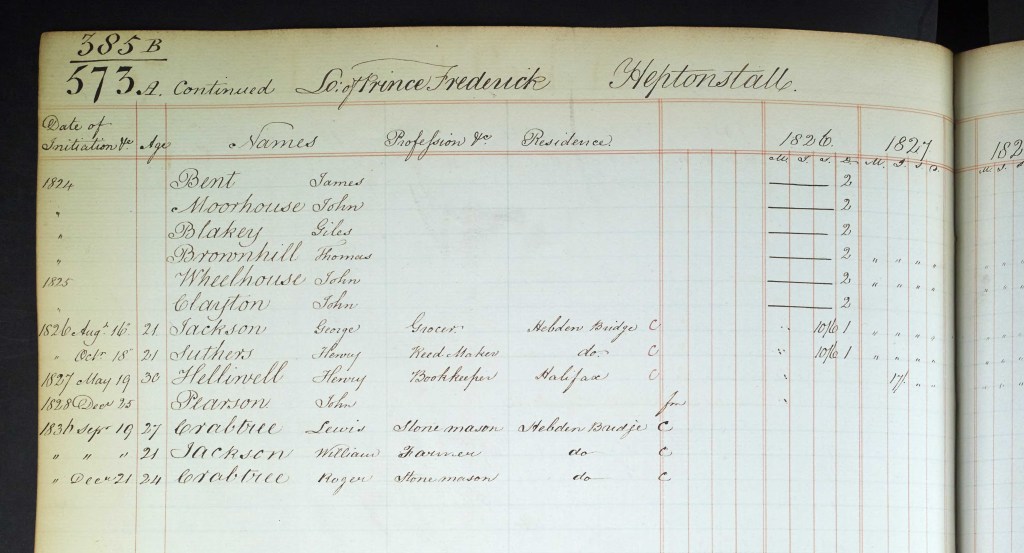 385 B
573 A. Continued Lo: of Prince Frederick Heptonstall.
Date of Initiation &c Age Names Profession &c. Residence. 1826. 1827
M. J. S. D. M. J. S. D. M. J. S.
1824 Bent James 2
" Moorhouse John 2
" Blakey Giles 2
" Brownhill Thomas 2 " " " "
1825 Wheelhouse John 2 " " " "
" Clayton John 2
1826 Augt. 16 21 Jackson George Grocer. Hebden Bridge C " 10/6 1 " " " "
" Octr. 18 21 Suthers Henry Reed Maker do. C " 10/6 1 " " " "
1827 May 19 30 Helliwell Henry Bookkeeper Halifax C " 17/. " "
1828 Decr 25 Pearson John fm "
1836 Sepr 19 27 Crabtree Lewis Stone mason Hebden Bridge C
" " " 21 Jackson William Farmer do C
" Decr 21 24 Crabtree Roger Stone mason do C